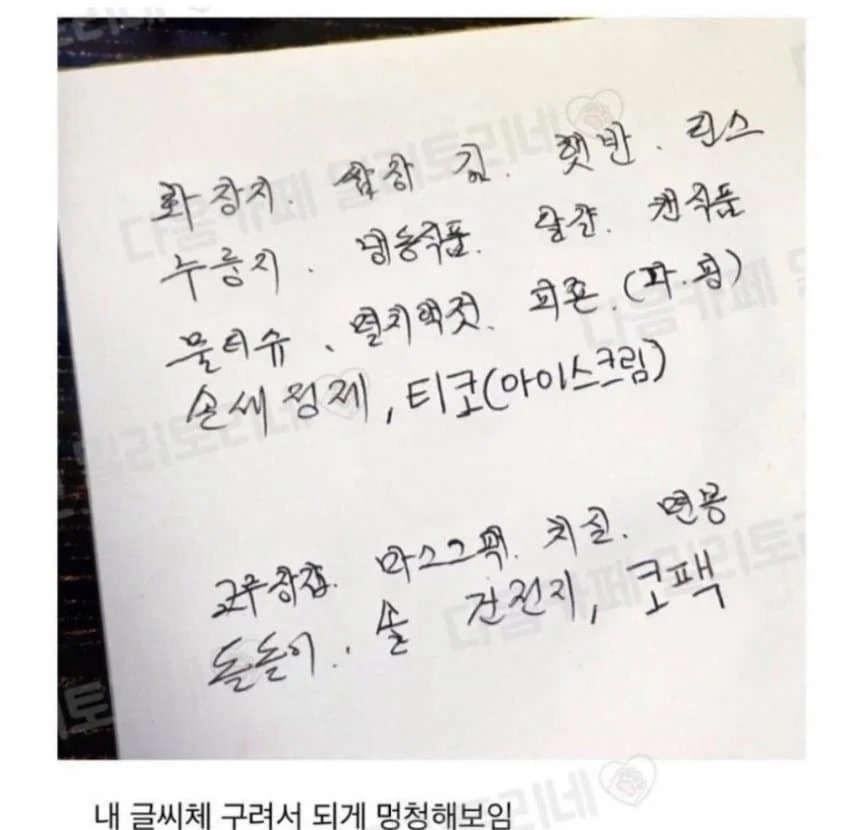 화장지. 쌈장 김. 햇반. 린스
누룽지. 냉동식품. 달걀. 캔식품
물티슈. 멸치액젓. 피죤. (파.핑)
손세정제, 티코(아이스크림)
고무장갑. 마스크팩. 치실. 면봉
돌돌이.. 솔 건전지, 코팩
내 글씨체 구려서 되게 멍청해보임